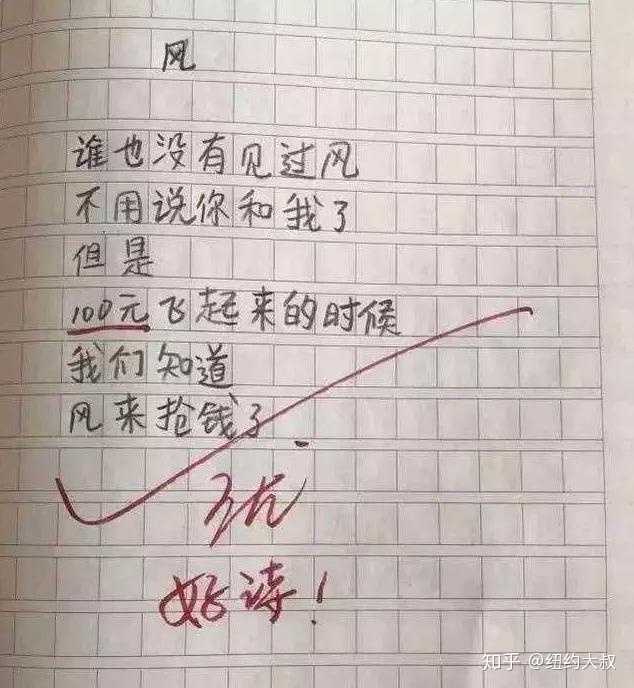 风
谁也没有见过风
不用说你和我了
但是
100元飞起来的时候
我们知道
风来抢钱了
优
好诗!
知乎 @纽约大叔